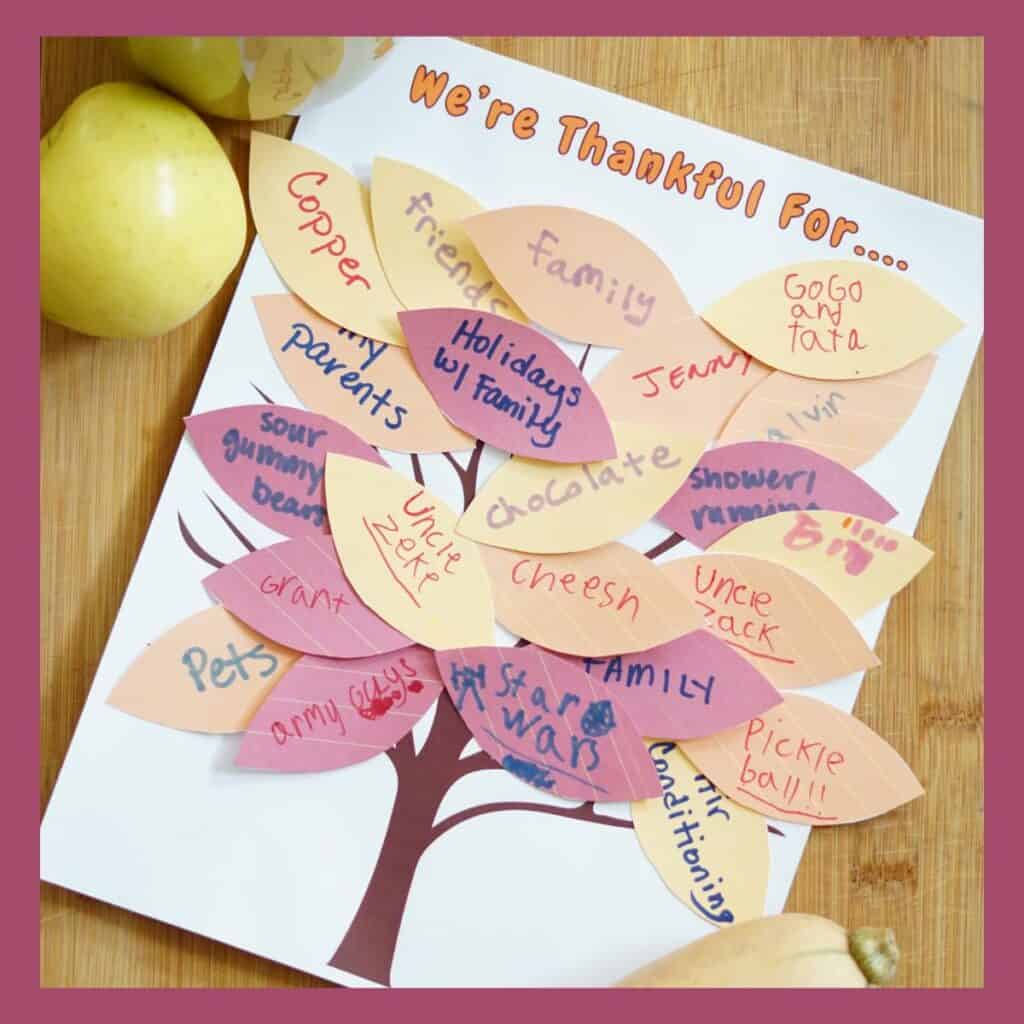 We're Thankful For....
Copper
Friends
Family
GoGo
and
tata
my
parents
Holidays
w/ Family
JENNY
alvin
sour
gummy
bears
chocolate
shower/
Uncle
Zeke
Grant
Cheesh
Uncle
Zack
Pets
army Guys
Star
Wars
FAMILY
Pickle
ball!!
Air
Conditioning